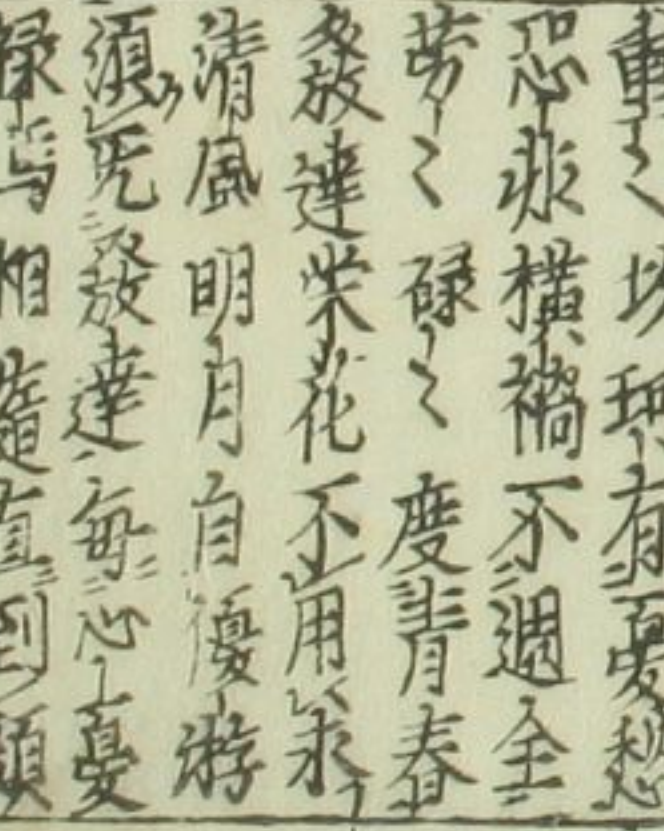 重〻坎珂有憂愁
恐非橫禍不週全
勞〻碌〻度青春
發達栄花不用求
清風明月自優游
須先發達毎心憂
祿馬相隨直到頭